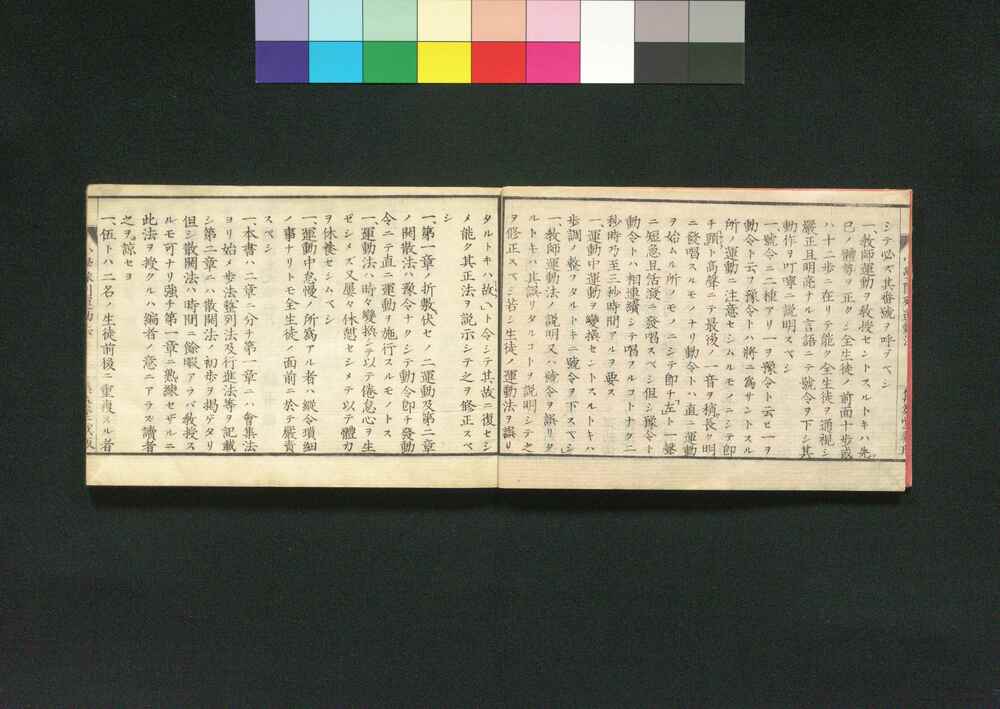 シテ必ズ其番號ヲ呼デベシ
一、教師運動ヲ教授セントスルトキハ先
己ノ體勢ヲ正クシ全生徒ノ前面十歩或
ハ十二歩ニ在リテ能ク全生徒ヲ通視シ
嚴正且明亮ナル言語ニテ號令ヲ下シ其
動作ヲ叮寧ニ説明スベシ
一、號令ニ二種アリ一ヲ豫令ト云ヒ一ヲ
動令ト云フ豫令トハ將ニ爲サントスル
所ノ運動ニ注意セシムルモノニシテ即
チ顕ト高聲ニテ最後ノ一音ヲ稍長ク明
ニ發唱スルモノナリ動令トハ直ニ運動
ヲ始ムル所ノモノニシテ即ナ左ト一聲
ニ短急且活溌ニ發唱スベシ但シ豫令ト
動令トハ相連續シテ唱フルコトナク二
秒時乃至三秒時間アルヲ要ス
一、運動中運動ヲ變換セントスルトキハ
歩調ノ整ヒタルトキニ號令ヲ下スベシ
一、教師運動法ノ説明又ハ號令ヲ誤リタ
ルトキハ其誤リタルコトヲ説明シテ之
ヲ修正スベシ若シ生徒ノ運動法ヲ誤リ
タルトキハ故ヘト令シテ其故ニ復セシ
メ能ク其正法ヲ説示シテ之ヲ修正スベ
シ
一、第一章ノ折敷伏セノ二運動及第二章
ノ開散法ハ豫令ナクシテ動令即チ發動
令ニテ直ニ運動ヲ施行スルモノトス
一、運動法ハ時々變換シテ以テ倦怠心ヲ生
ゼシメズ又屢々休憩セシメテ以テ體力
ヲ休養セシムベシ
一、運動中怠慢ノ所爲アル者ハ縱令瑣細
ノ事ナリトモ全生徒ノ面前ニ於テ嚴責
スベシ
一、本書ハ二章ニ分チ第一章ニハ會集法
ヨリ始メ歩法整列法及行進法等ヲ記載
シ第二章ニハ散開法ノ初歩ヲ掲ゲタリ
但シ散開法ハ時間ニ餘暇アラバ教授ス
ルモ可ナリ強チ第一章ニ熟練セザルニ
此法ヲ授クルハ編者ノ意ニアラズ讀者
之ヲ諒セヨ
一、伍トハ二名ノ生徒前後ニ重複スル者